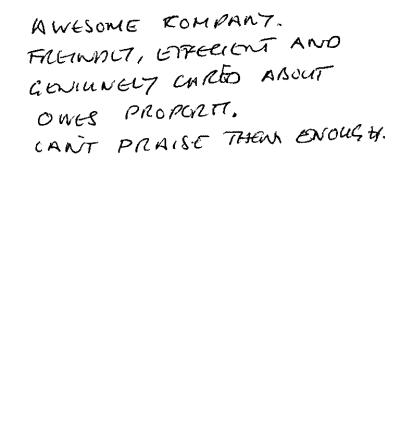 AWESOME COMPANY.
FREINDLY, EFFECIENT AND
GENIUNELY CARED ABOUT
OWES PROPERTY.
CAN'T PRAISE THEM ENOUGH.